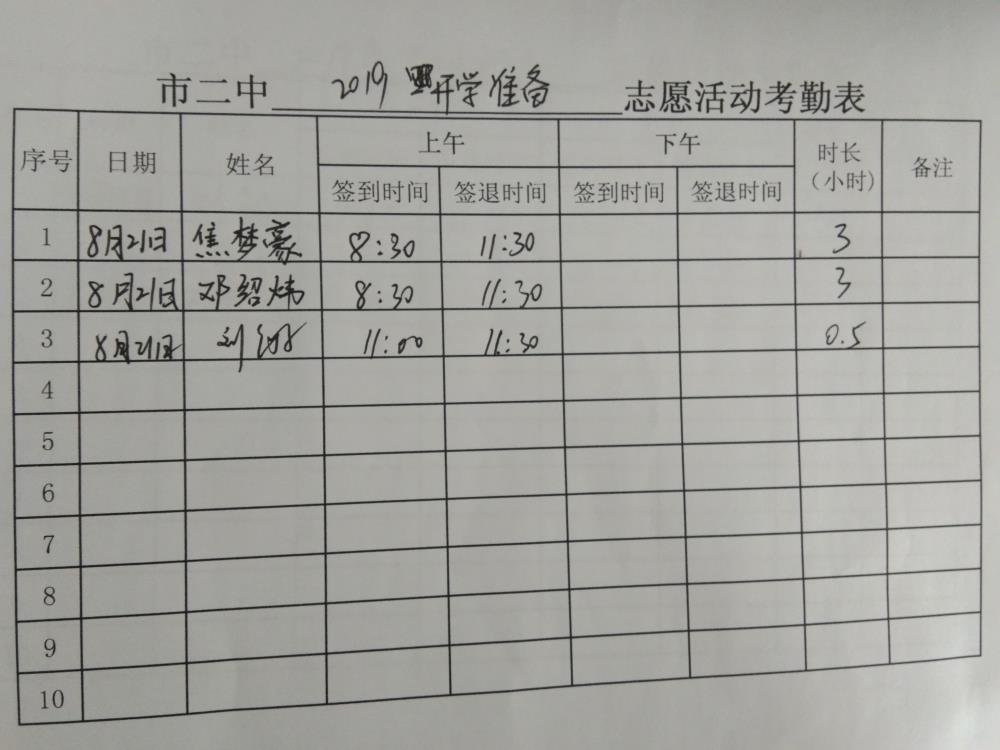 市二中 2019 开学准备 志愿活动考勤表
序号 日期 姓名 上午 下午 时长(小时) 备注
签到时间 签退时间 签到时间 签退时间
1 8月21日 焦梦豪 8:30 11:30 3
2 8月21日 邓绍炜 8:30 11:30 3
3 8月21日 刘 11:00 11:30 0.5
4
5
6
7
8
9
10